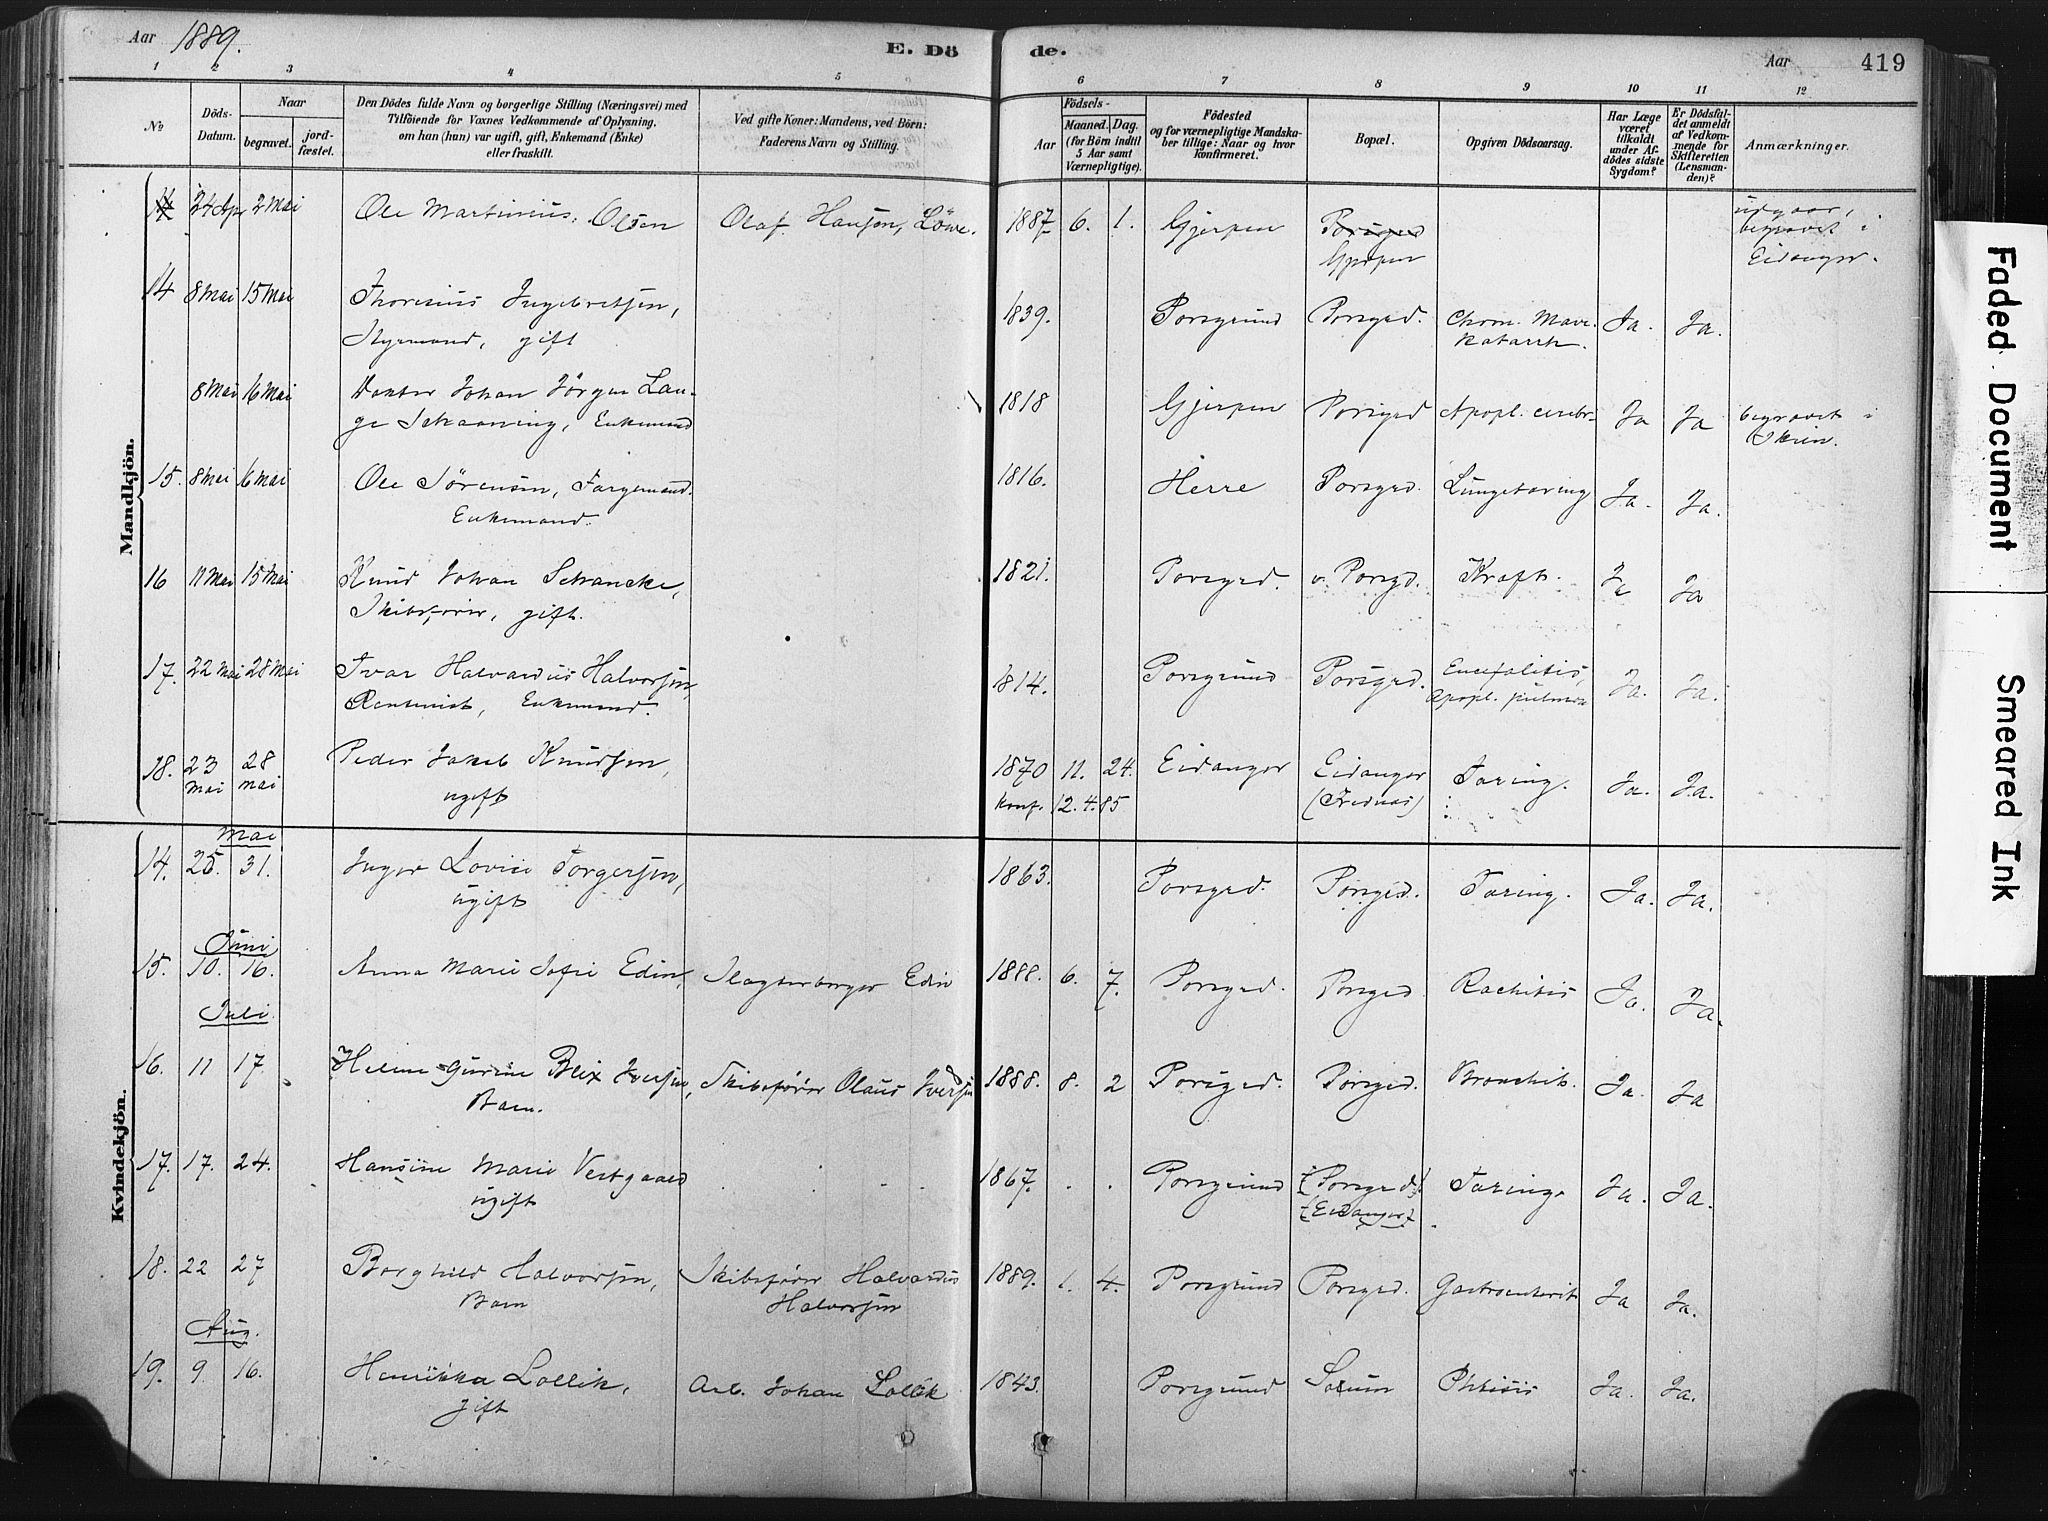 Aar 1889. E. Dö de. Aar 419
1 2 3 4 5 6 7 8 9 10 11 12
№
Döds-Datum.
Naar
begravet.
jord-fæstet.
Den Dödes fulde Navn og borgerlige Stilling (Næringsvei) med
Tilföiende for Voxnes Vedkommende af Oplysning,
om han (hun) var ugift, gift, Enkemand (Enke)
eller fraskilt.
Ved gifte Koner: Mandens, ved Börn:
Faderens Navn og Stilling.
Födsels-
Aar
Maaned. Dag.
(for Börn indtil
5 Aar samt
Værnepligtige).
Födested
og for værnepligtige Mandska-
ber tillige: Naar og hvor
konfirmeret.
Bopæl.
Opgiven Dödsaarsag.
Har Læge
været
tilkaldt
under Af-
dödes sidste
Sygdom?
Er Dödsfal-
det anmeldt
af Vedkom-
mende for
Skifteretten
(Lensman-
den)?
Anmærkninger.
Mandkjön.
24 Apr 2 Mai Ole Martinius Olsen Olaf Hansen, Löwe. 1887 6. 1. Gjerpen Porsgrd Gjerpen udgaar, begravet i Eidanger.
14 8 Mai 15 Mai Thorenius Ingebretsen, 1839. Porsgrund Porsgrd. Chron. Mave- Ja. Ja.
Styrmand, gift katarrh.
8 Mai 16 Mai Doktor Johan Jørgen Lan- 1818 Gjerpen Porsgrd Apopl. cerebr. Ja Ja begravet i
ge Schaaning, Enkemand Skien.
15. 8 Mai 16 Mai Ole Sörensen, Færgemand. 1816. Herre Porsgrd. Lungetæring Ja. Ja.
Enkemand.
16 11 Mai 15 Mai Knud Johan Schancke, 1821. Porsgrd. v. Porsgd. Kræft. Ja Ja
Skibsfører, gift.
17. 22 Mai 28 Mai Ivar Halvardus Halvorsen, 1814. Porsgrund Porsgrd. Encefalitis, Ja. Ja.
Rentenist, Enkemand. Apopl. pulmon
18. 23 Mai 28 Mai Peder Jakob Knudsen, 1870 11. 24. Eidanger Eidanger Tæring. Ja. Ja.
ugift konf. 12. 4. 85 (Frednæs)
Kvindekjön.
Mai
14. 25. 31. Inger Lovise Torgersen, 1863. Porsgrd. Porsgrd. Tæring. Ja. Ja.
ugift
Juni
15. 10. 16. Anna Marie Sofie Edin, Slagterborger Edin 1888. 6. 7. Porsgrd. Porsgrd Rachitis Ja. Ja.
Juli
16. 11 17. Helene Gurine Blix Iversen, Skibsfører Olaus Iversen 1888. 8. 2 Porsgrd. Porsgrd. Bronchit. Ja. Ja
Barn.
17. 17. 24. Hansine Marie Vestgaard 1867. Porsgrund (Porsgrd.) Tæring Ja. Ja.
ugift (Eidanger)
18. 22 27 Borghild Halvorsen, Skibsfører Halvardus 1889. 1. 4. Porsgrund Porsgrd. Gastroenterit Ja Ja.
Barn Halvorsen
Aug.
19. 9. 16. Henrikka Lollik, Arb. Johan Lollik 1843. Porsgrund Phtisis Ja. Ja.
gift
Faded Document
Smeared Ink